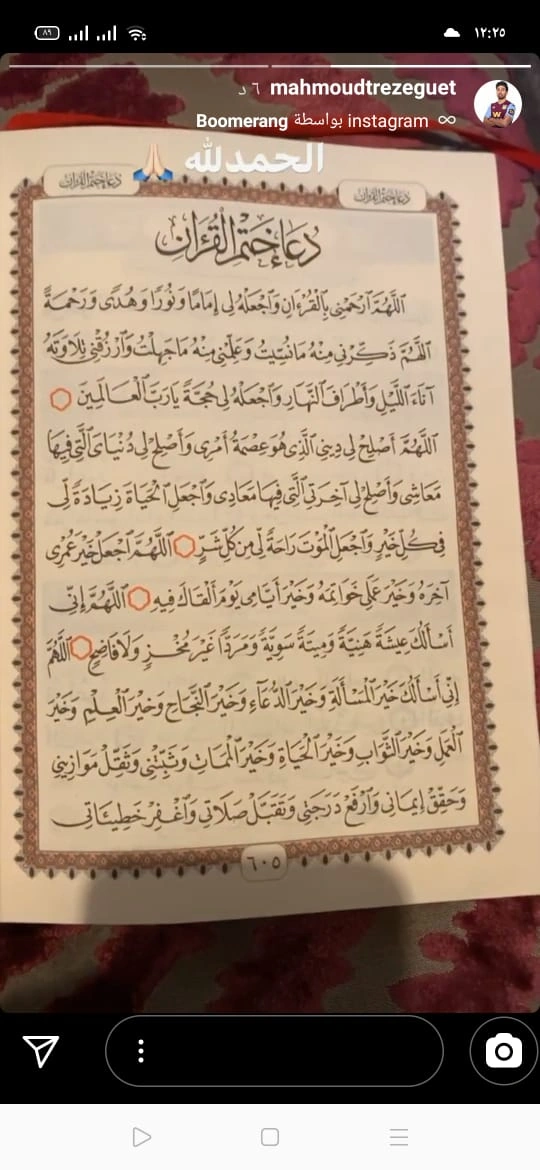 ٨٩
١٢:٢٥
mahmoudtrezeguet ٦ د
∞ instagram بواسطة Boomerang
الحمدلله 🙏🏻
دعاء ختم القرآن
دعاء ختم القرآن
دُعَاءُ خَتْمِ الْقُرْءَانِ
اَللَّهُمَّ ٱرْحَمْنِي بِالْقُرْءَانِ وَٱجْعَلْهُ لِي إِمَامًا وَنُورًا وَهُدًى وَرَحْمَةً
اَللَّهُمَّ ذَكِّرْنِي مِنْهُ مَا نَسِيتُ وَعَلِّمْنِي مِنْهُ مَا جَهِلْتُ وَٱرْزُقْنِي تِلَاوَتَهُ
آنَاءَ ٱللَّيْلِ وَأَطْرَافَ ٱلنَّهَارِ وَٱجْعَلْهُ لِي حُجَّةً يَارَبَّ ٱلْعَالَمِينَ
اَللَّهُمَّ أَصْلِحْ لِي دِينِي ٱلَّذِي هُوَ عِصْمَةُ أَمْرِي وَأَصْلِحْ لِي دُنْيَايَ ٱلَّتِي فِيهَا
مَعَاشِي وَأَصْلِحْ لِي آخِرَتِي ٱلَّتِي فِيهَا مَعَادِي وَٱجْعَلِ ٱلْحَيَاةَ زِيَادَةً لِّي
فِي كُلِّ خَيْرٍ وَٱجْعَلِ ٱلْمَوْتَ رَاحَةً لِّي مِن كُلِّ شَرٍّ اَللَّهُمَّ ٱجْعَلْ خَيْرَ عُمْرِي
آخِرَهُ وَخَيْرَ عَمَلِي خَوَاتِمَهُ وَخَيْرَ أَيَّامِي يَوْمَ أَلْقَاكَ فِيهِ اَللَّهُمَّ إِنِّي
أَسْأَلُكَ عِيشَةً هَنِيَّةً وَمِيتَةً سَوِيَّةً وَمَرَدًّا غَيْرَ مُخْزٍ وَلَا فَاضِحٍ اَللَّهُمَّ
إِنِّي أَسْأَلُكَ خَيْرَ ٱلْمَسْأَلَةِ وَخَيْرَ ٱلدُّعَاءِ وَخَيْرَ ٱلنَّجَاحِ وَخَيْرَ ٱلْعِلْمِ وَخَيْرَ
ٱلْعَمَلِ وَخَيْرَ ٱلثَّوَابِ وَخَيْرَ ٱلْحَيَاةِ وَخَيْرَ ٱلْمَمَاتِ وَثَبِّتْنِي وَثَقِّلْ مَوَازِينِي
وَحَقِّقْ إِيمَانِي وَٱرْفَعْ دَرَجَتِي وَتَقَبَّلْ صَلَاتِي وَٱغْفِرْ خَطِيئَاتِي
٦٠٥